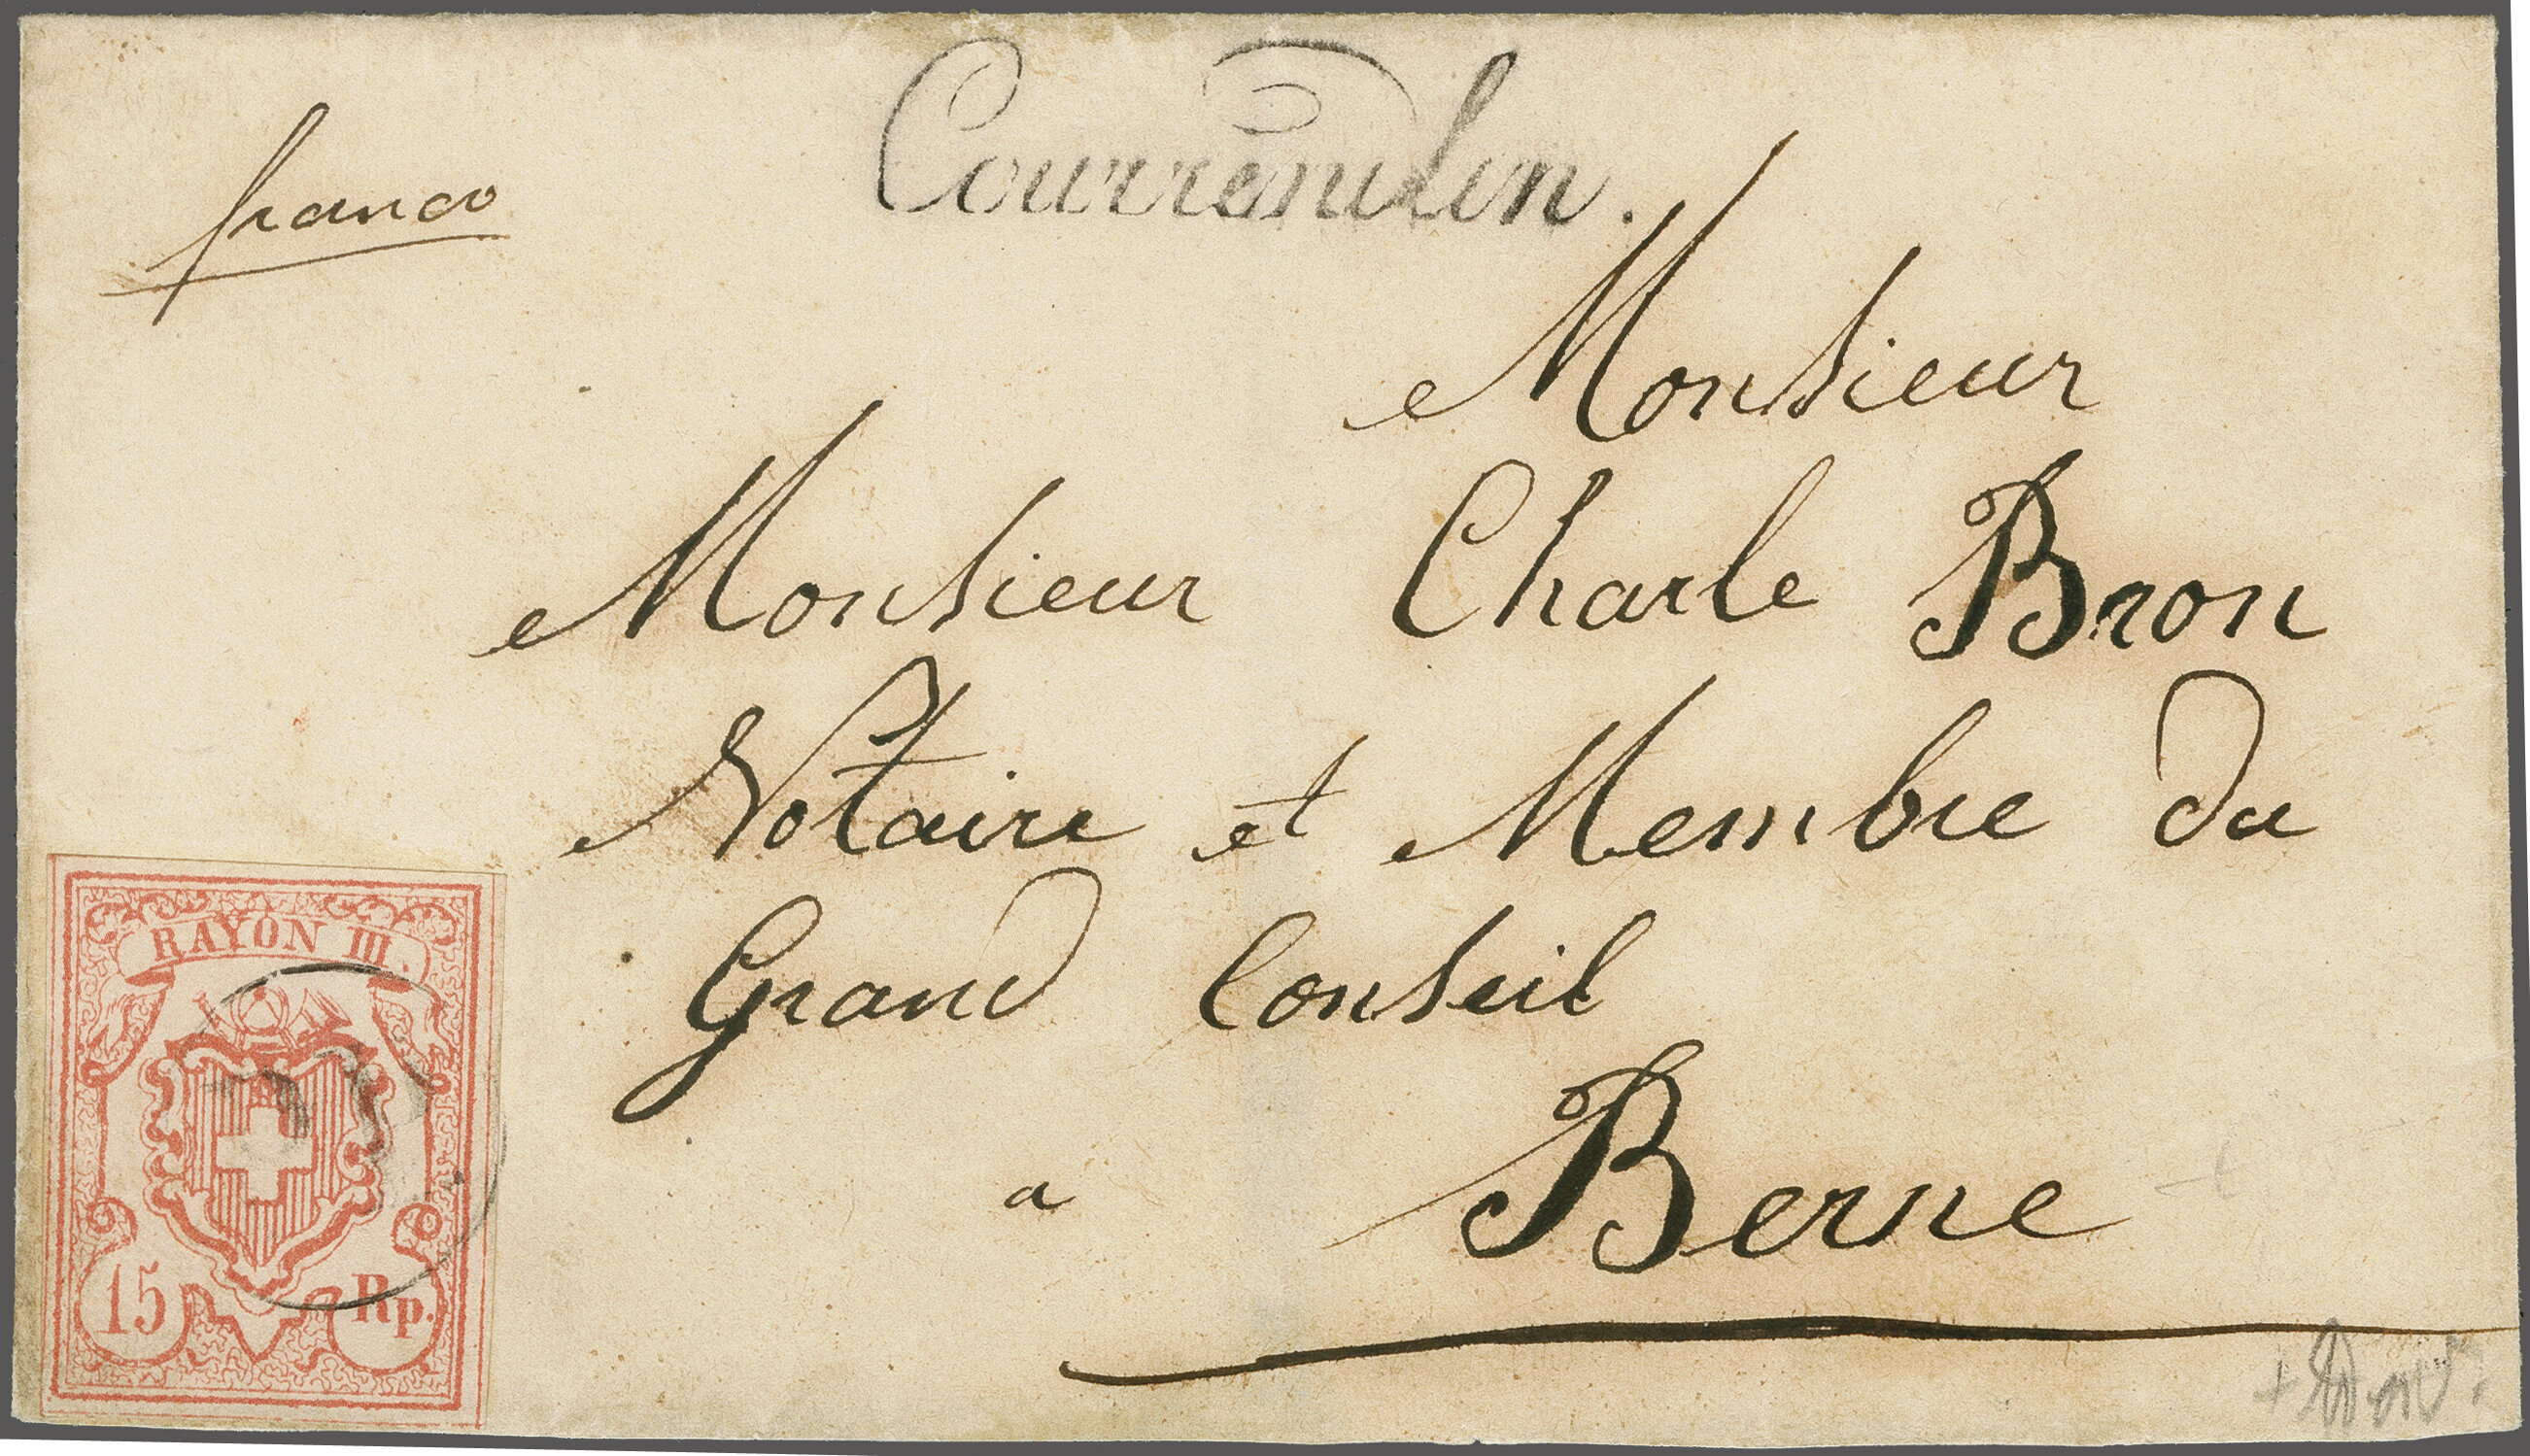 Courrendlin.
franco
Monsieur
Monsieur Charle Bron
Notaire et Membre du
Grand Conseil
a Berne
RAYON III.
15 Rp.